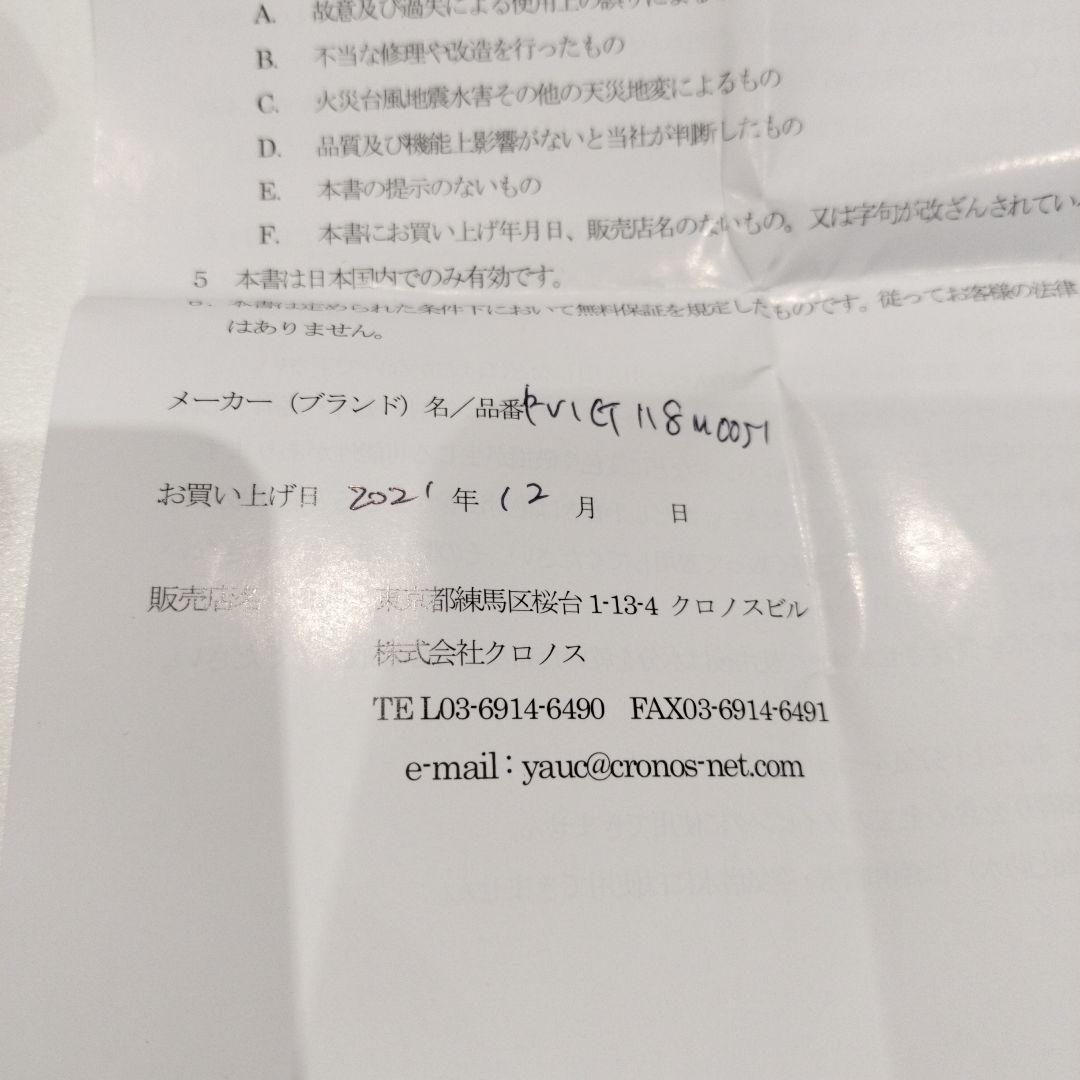 A. 故意及び過失による使用上の誤りによる
B. 不当な修理や改造を行ったもの
C. 火災台風地震水害その他の天災地変によるもの
D. 品質及び機能上影響がないと当社が判断したもの
E. 本書の提示のないもの
F. 本書にお買い上げ年月日、販売店名のないもの。又は字句が改ざんされてい
5 本書は日本国内でのみ有効です。
6. 本書は定められた条件下において無料保証を規定したものです。従ってお客様の法律
はありません。
メーカー（ブランド）名／品番
お買い上げ日 2021 年 12 月 日
販売店名 東京都練馬区桜台 1-13-4 クロノスビル
株式会社クロノス
TE L03-6914-6490 FAX03-6914-6491
e-mail：yauc@cronos-net.com